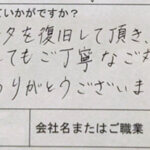 ていかがですか？
タを復旧して頂き、
てもご丁寧なご対
りがとうございま
会社名またはご職業